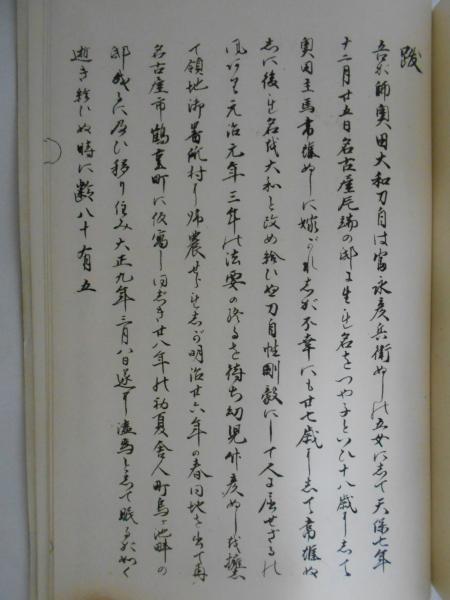 跋
吾が師奥田大和刀自は富永彦兵衛ぬしの五女にして天保七年
十二月廿五日名古屋尾端の邸に生れ名をつや子といひ十八歳にして
奥田主馬高雄ぬしに嫁がれしが不幸にも廿七歳にして高雄ぬ
しに後れ名を大和と改め給ひぬ刀自性剛毅にして人に屈せざるの
風ありて元治元年三年の法要の終るを待ち幼児作彦ぬしを擁し
て領地御器所村に帰農せられしが明治廿六年の春同地を出て再
名古屋市鶴重町に仮寓し同じき廿八年の初夏舎人町烏ヶ池畔の
邸成るに及び移り住み大正九年三月八日遂に溘焉として眠るが如く
逝き給ひぬ時に齢八十有五